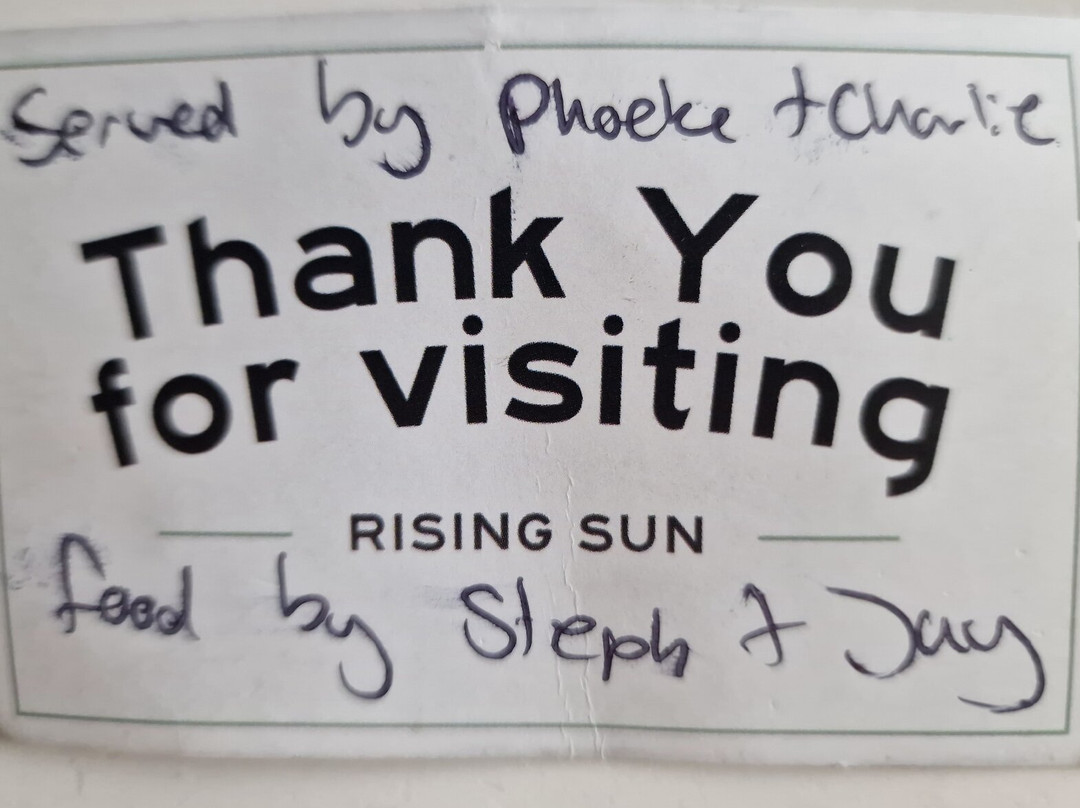 Served by Phoebe + Charlie
Thank You
for visiting
RISING SUN
food by Steph + Jay